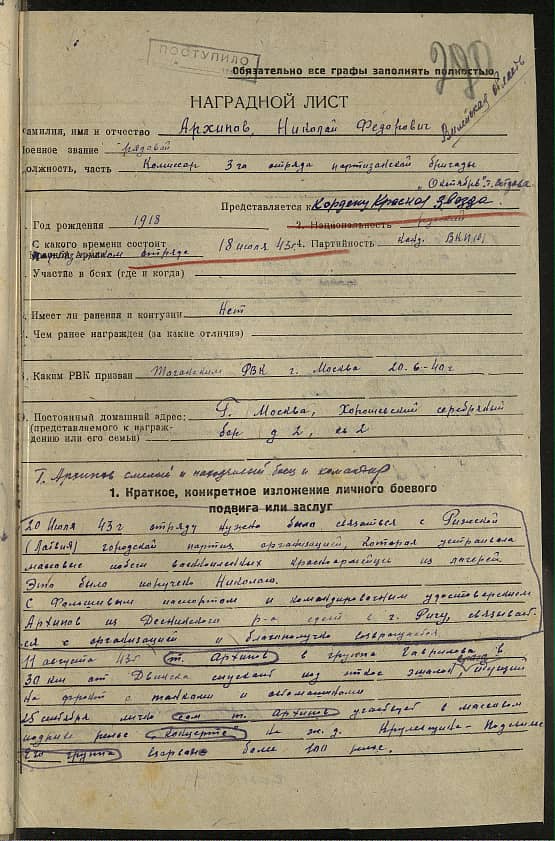 ПОСТУПИЛО
290
Обязательно все графы заполнять полностью
Вилейская область
НАГРАДНОЙ ЛИСТ
Фамилия, имя и отчество Архипов, Николай Федорович
Военное звание рядовой
Должность, часть Комиссар 3го отряда партизанской бригады
"Октябрь"
Представляется к Ордену Красная Звезда.
Год рождения 1918 3. Национальность русский
С какого времени состоит 18 июля 43г 4. Партийность канд. ВКП(б)
отряда
Участие в боях (где и когда)
Имеет ли ранения и контузии Нет
Чем ранее награжден (за какие отличия)
Каким РВК призван Таганским РВК г. Москва 20.6-40г
Постоянный домашний адрес: Г. Москва, Хорошевский серебряный
(представляемого к награж- бор д 2, кв 2
дению или его семьи)
Т. Архипов смелый и находчивый боец и командир
1. Краткое, конкретное изложение личного боевого
подвига или заслуг
20 Июля 43 г отряду нужно было связаться с Рижской
(Латвия) городской партиз организацией, которая устраивала
массовые побеги военнопленных красноармейцев из лагерей
Это было поручено Николаю.
С Фальшивым паспортом и командировочным удостоверением
Архипов из Дисненского р-а едет в г. Ригу, связывает-
ся с организацией и благополучно возвращается.
11 августа 43г т. Архипов в группе Гаврилова в
30 км от Двинска спускает под откос эшалон врага, идущий
на фронт с танками и автомашинами
25 сентября лично сам т. Архипов участвует в массовом
подрыве рельс "концерте" на ж. д. Крулевщизна-Подсвилье
Его группа взорвано более 100 рельс.